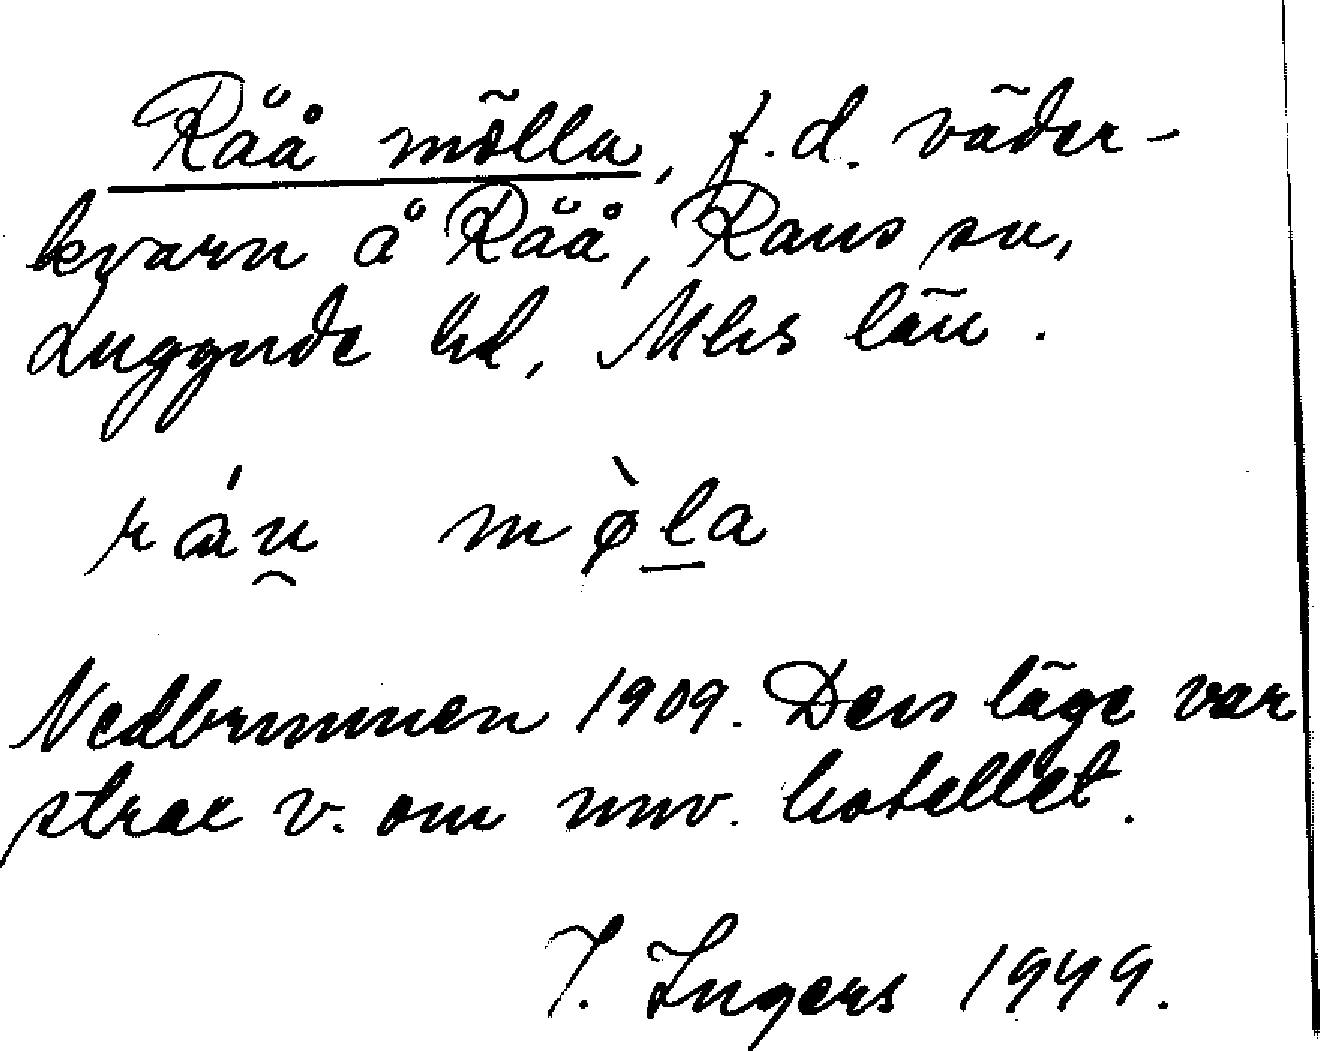 Råå mölla, f.d. väder-
kvarn å Råå, Raus sn,
Luggude hd, Mlhs län.
ráu̯ mø̀l̲a
Nedbrunnen 1909. Dess läge var
strax v. om nuv. hotellet.
I. Ingers 1949.